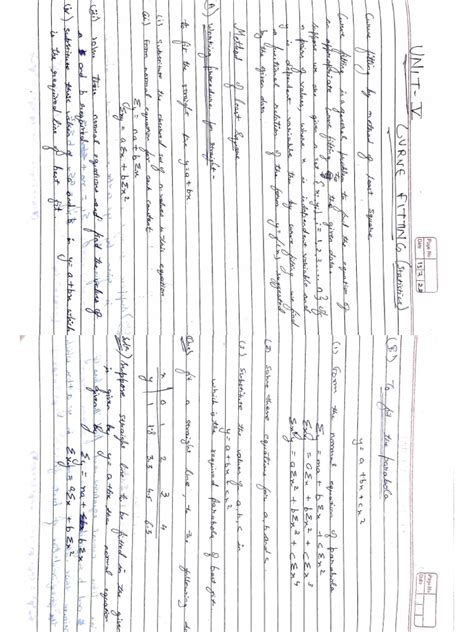 UNIT - V
CURVE FITTING (Statistics)
Page No.
Date 13/7/23
Curve fitting by method of least square
Curve fitting is a general problem to find the equation of
an appropriate curve fitting to the given data.
Suppose we are given n set {xi, yi} i = 1, 2, 3, ... n} of
n pairs of values, where x is independent variable and
y is dependent variable the by curve fitting we find
a functional relation of the form y = f(x) suggested
by the given data
Method of least Square
(A) Working procedure for straight -
to fit the straight line y = a + bx
(i) Substitute the observed set of n values in this equation
(ii) Form normal equation for each constant
Σy = na + bΣx
Σxy = aΣx + bΣx²
(iii) Solve these normal equations and find the values of
a and b
(iv) Substitute these values of a and b in y = a + bx which
is the required line of best fit.
Page No.
Date
(B) To fit the parabola
y = a + bx + cx²
(1) Form the normal equation of parabola
Σy = na + bΣx + cΣx²
Σxy = aΣx + bΣx² + cΣx³
Σx²y = aΣx² + bΣx³ + cΣx⁴
(2) Solve these equations for a, b and c
(3) Substitute the values of a, b, c in
y = a + bx + cx²
which is the required parabola of best fit
fit a straight line, to the following
x 0 1 2 3 4
y 1 1.8 3.3 4.5 6.3
Suppose straight line to be fitted in the given
is given by y = a + bx then normal equation
Σy = na + bΣx
Σxy = aΣx + bΣx²